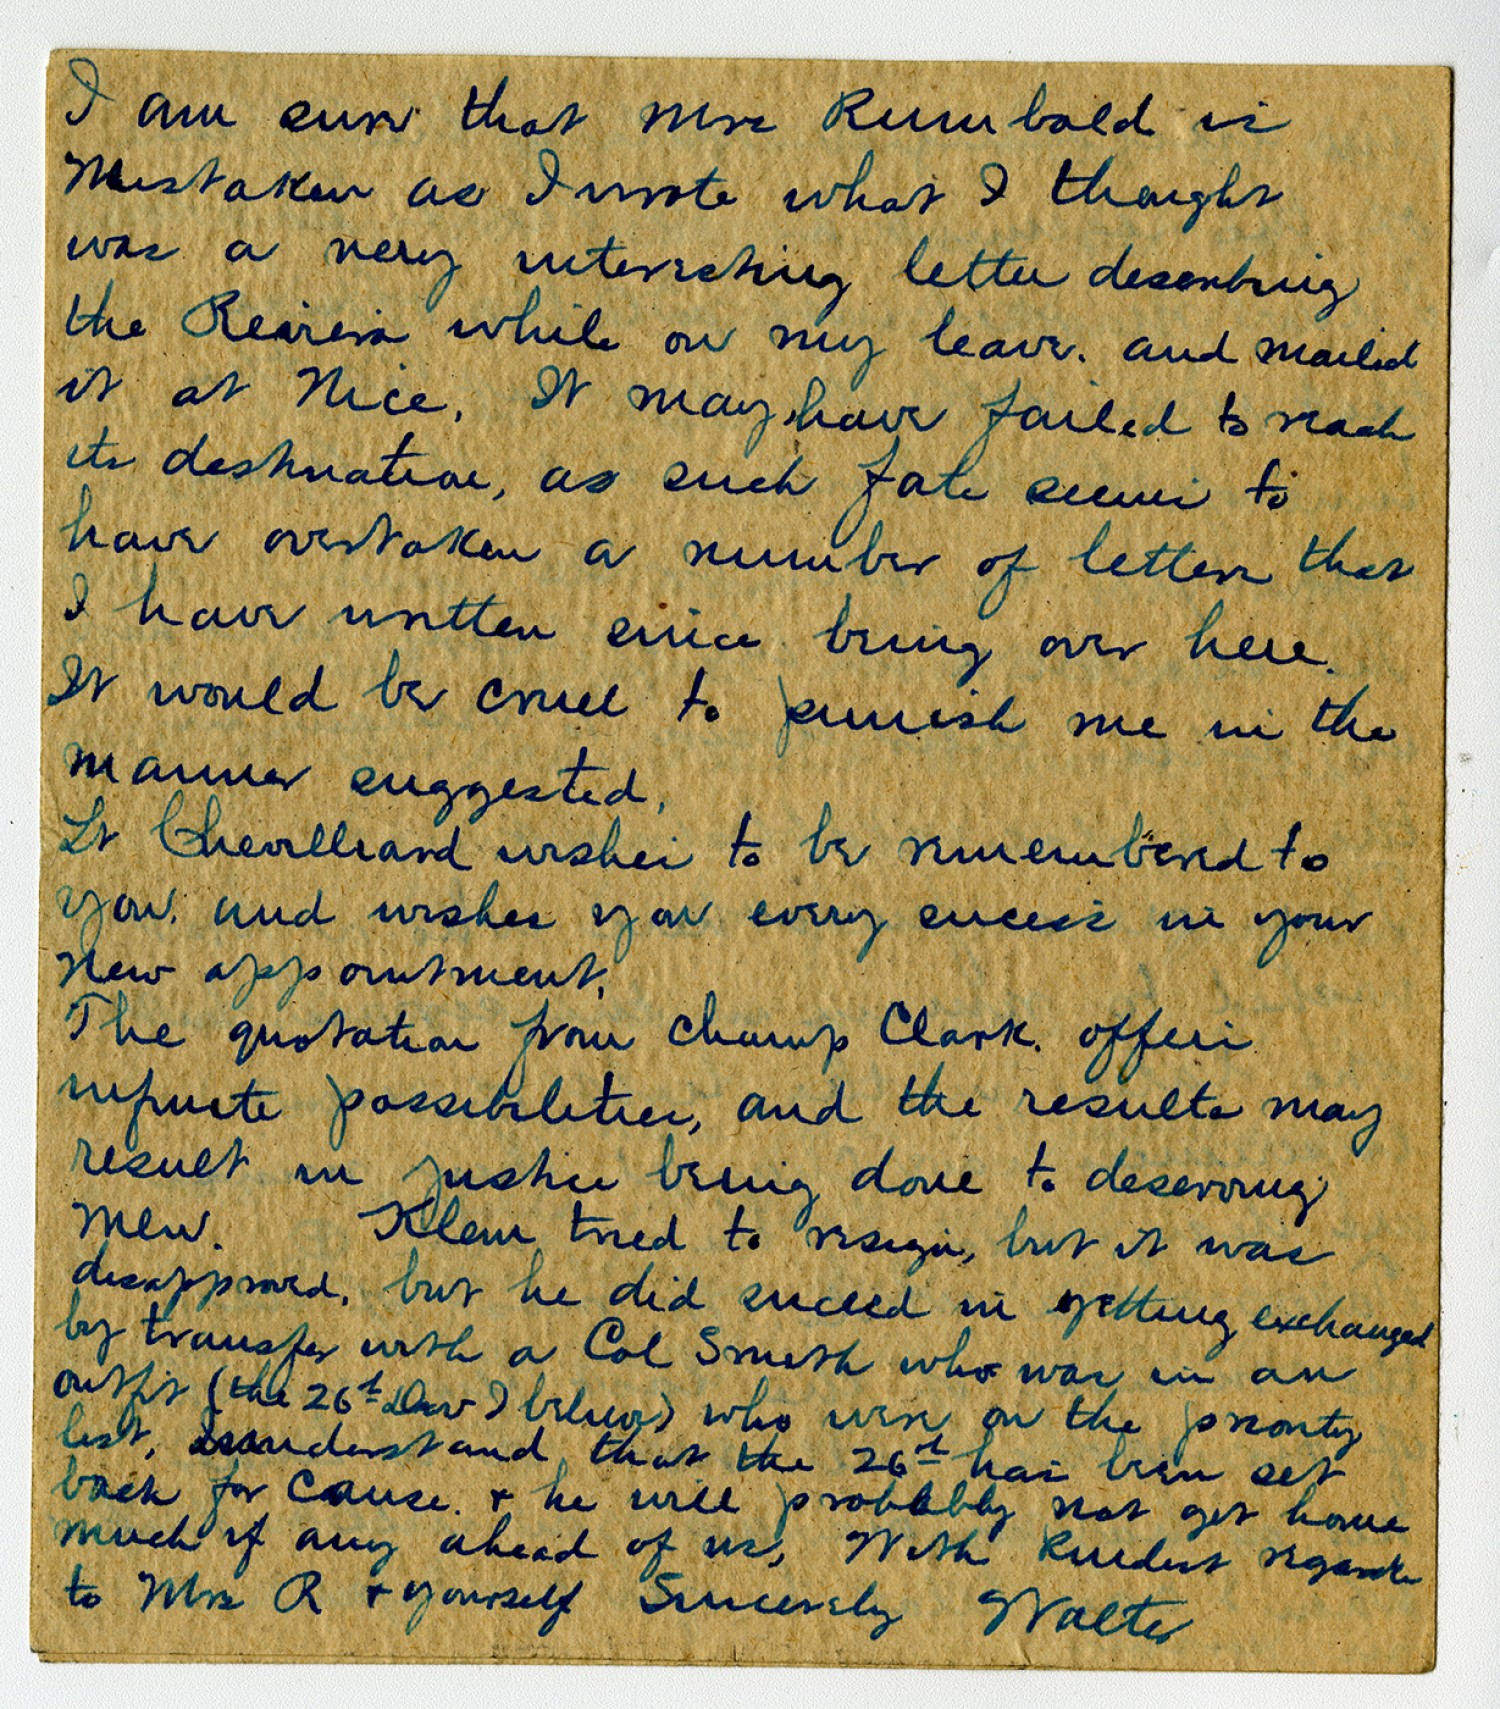 I am sure that Mrs Rumbold is
Mistaken as I wrote what I thought
was a very interesting letter describing
the Reviera while on my leave. and mailed
it at Nice. It may have failed to reach
its destination, as such fate seems to
have overtaken a number of letters that
I have written since being over here.
It would be cruel to punish me in the
manner suggested.
Lt Chevilliard wishes to be remembered to
you. and wishes you every sucess in your
New appointment.
The quotation from Champ Clark. offers
infinite possibilities, and the results may
result in justice being done to deserving
Men. Klem tried to resign, but it was
disapproved. but he did suceed in getting exchanged
by transfer with a Col Smith who was in an
outfit (the 26th Div I believe) who were on the priority
list, understand that the 26th has been set
back for Cause. + he will probably not get home
much if any ahead of us. With Kindest regards
to Mrs R + yourself Sincerely Walter